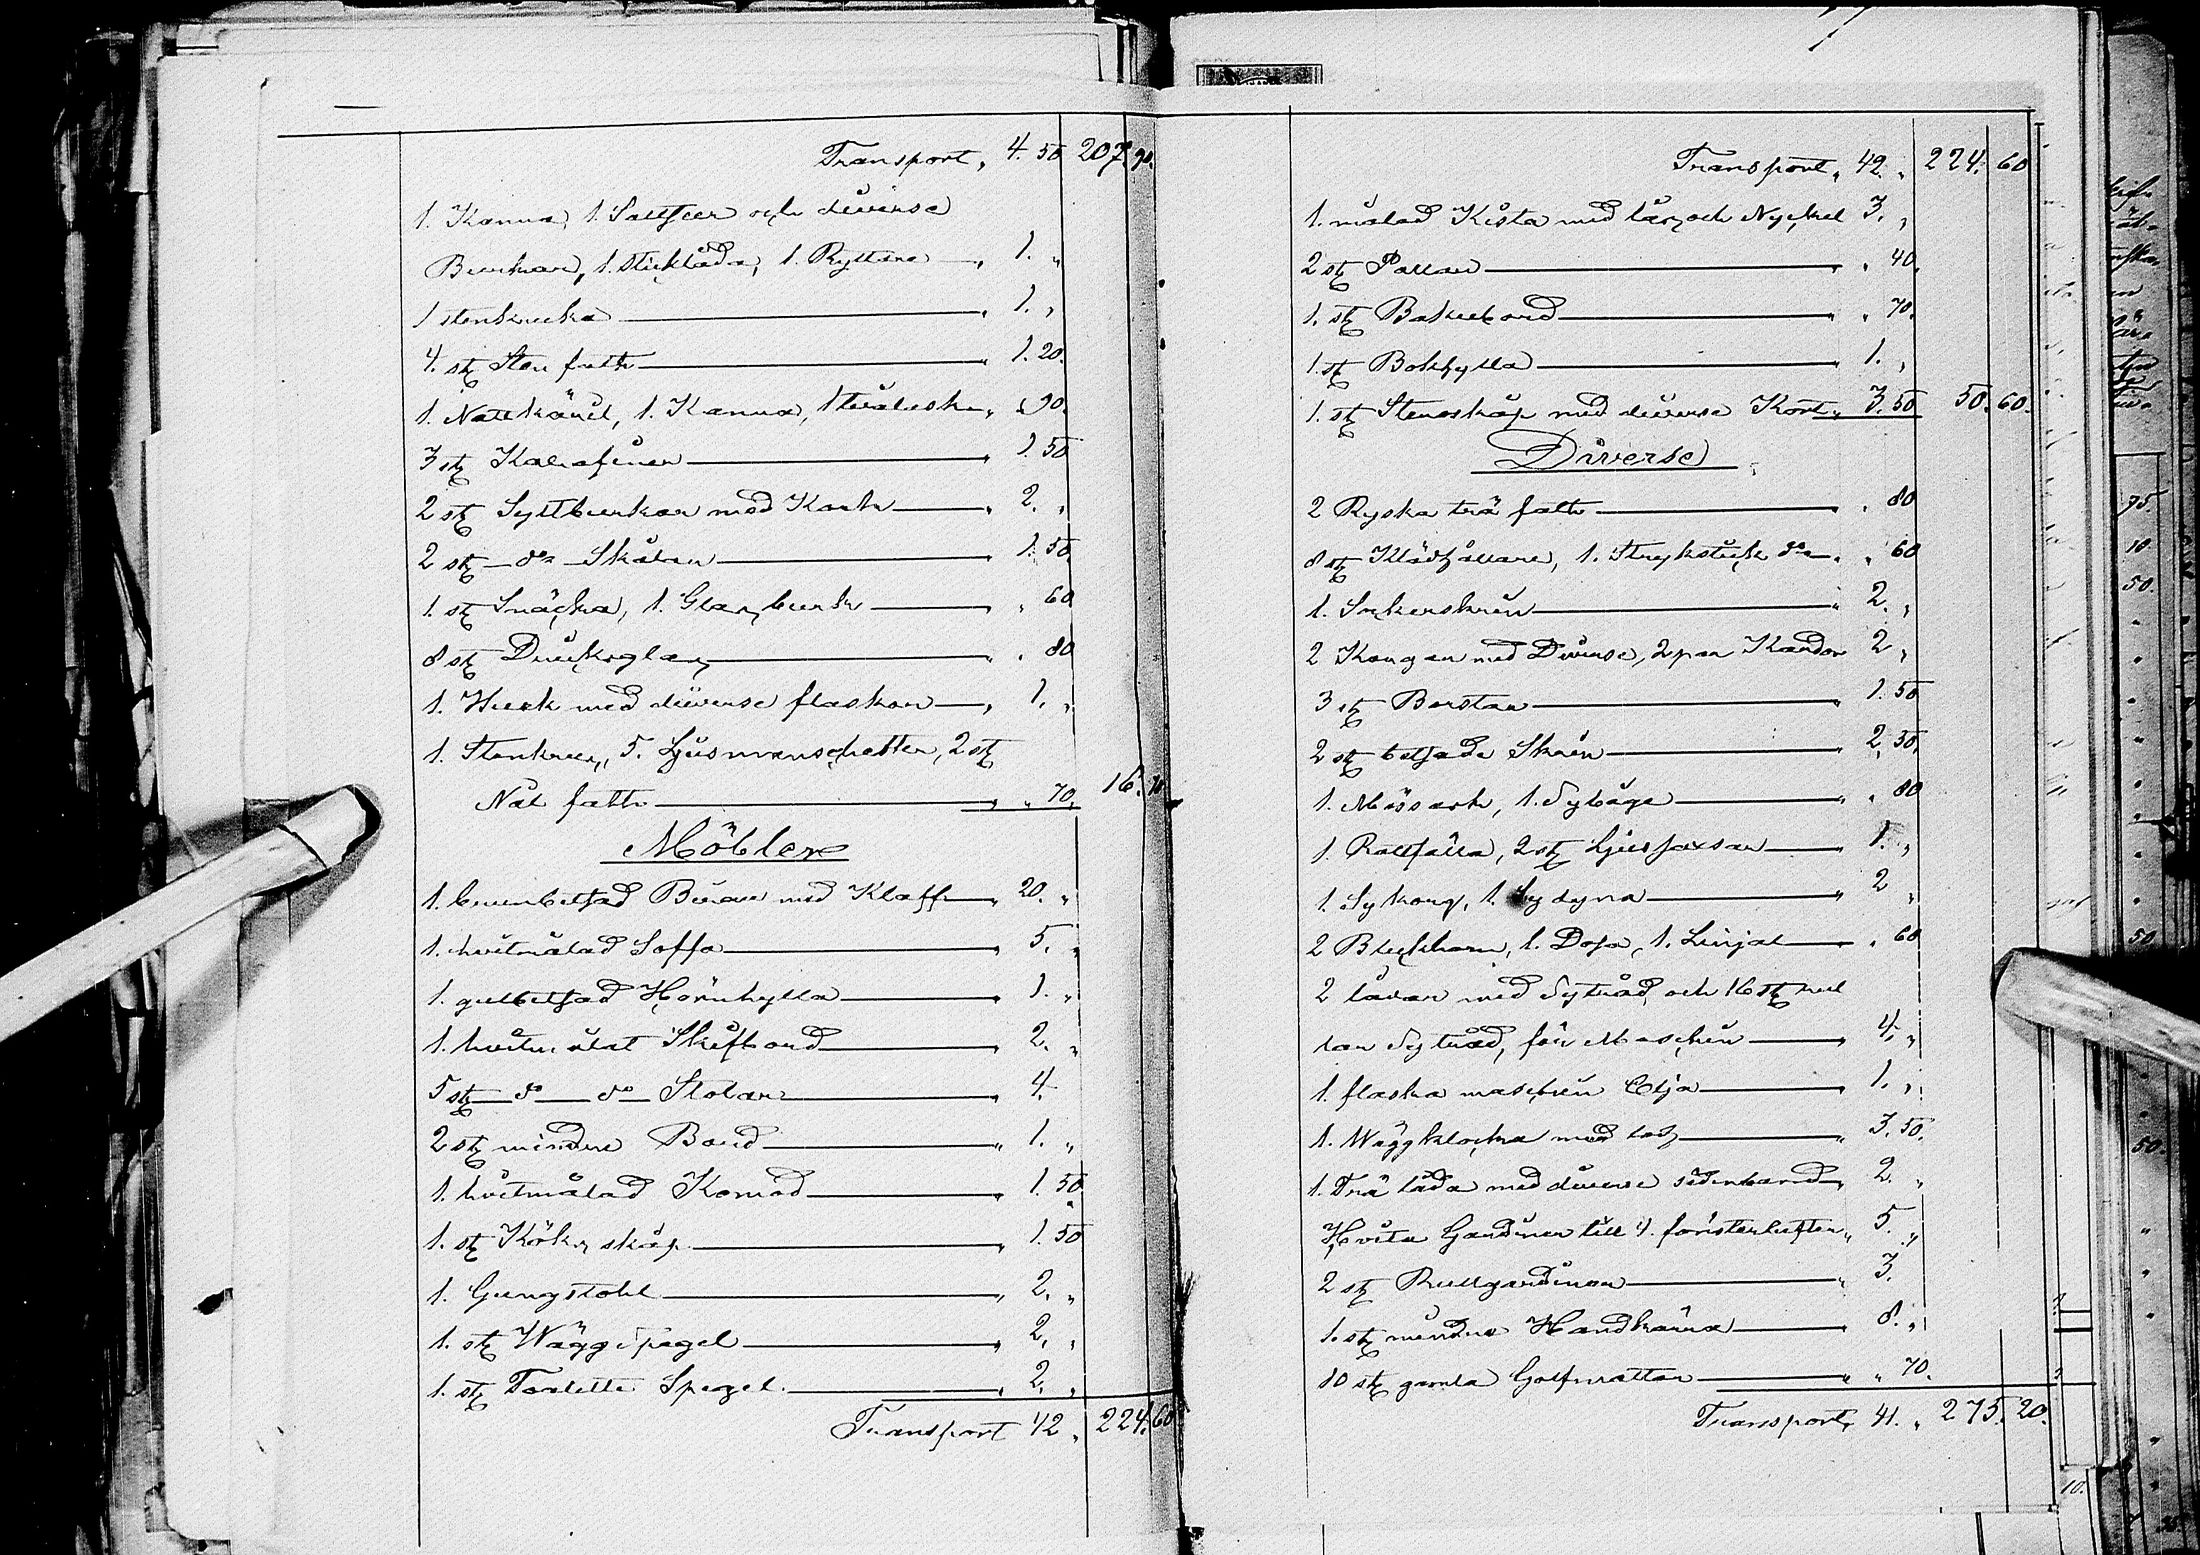 Transport, 4. 50 207. 90.
1. Kanna, 1. Saltkar och diverse
Burkar, 1. sticklåda, 1. Ryttare — 1. "
1 stenkruka — 1. "
4. st Sten fath — 1. 20.
1. Nattkäril, 1. Kanna, 1 tvålask — " 90.
3 st Karafiner — 1. 50
2 st Syltburkar med Kork — 2. "
2 st — do — Skålar — 1. 50.
1. st Snäcka, 1. Glasburk — " 60
8 st Dricksglas — " 80
1. Hurk med diverse flaskor — 1. "
1. Stenkrus, 5. Ljusmanschetter, 2 st
Nät fath — " 70. 16. 70
Möbler
1. brunbetsad Birau med Klaff — 20. "
1. hvitmålad Soffa — 5. "
1. gulbetsad Hörnhylla — 1. "
1. hvitmålat Skifbord — 2. "
5 st — do — do — Stolar — 4.
2 st mindre Bord — 1. "
1. hvitmålad Komod — 1. 50
1. st Köksskåp — 1. 50
1. Gungstohl — 2. "
1. st Wäggspegel — 2. "
1. st Toalette Spegel — 2. "
Transport 42 " 224. 60
Transport, 42. " 224. 60
1. målad Kista med lås och Nyckel 3. "
2 st Pallar — " 40.
1. st Bakebord — " 70.
1. st Bokhylla — 1. "
1. st Stenoskåp med diverse Kort — 3. 50 50. 60.
Diverse
2 Ryska trä fath — " 80
8 st Klädhållare, 1. Strykstick do — " 60
1. Sykerskrin — 2. "
2 Korgar med Diverse, 2 par Kardor 2 "
3 st Borstar — 1. 50
2 st betsade Skrin — 2. 30.
1. Mässark, 1. Sybåge — " 80
1. Råttfälla, 2 st Ljussaxar — 1. "
1. Sykorg, 1. Sydyna — 2 "
2 Bleckhorn, 1. Dosa, 1. Linjal — " 60
2 lådar med Sytråd, och 16 st rul
lar Sytråd, för Maschin — 4. "
1. flaska maschin Olja — 1. "
1. Wäggklocka med lod — 3. 50.
1. Trä låda med diverse sidenband, 2. "
Hvita Gardiner till 4. fönsterlufter, 5. "
2 st Rullgardiner — 3.
1. st mindre Handkärra — 8. "
10 st gamla Golfmattor — " 70.
Transport, 41. " 275. 20.